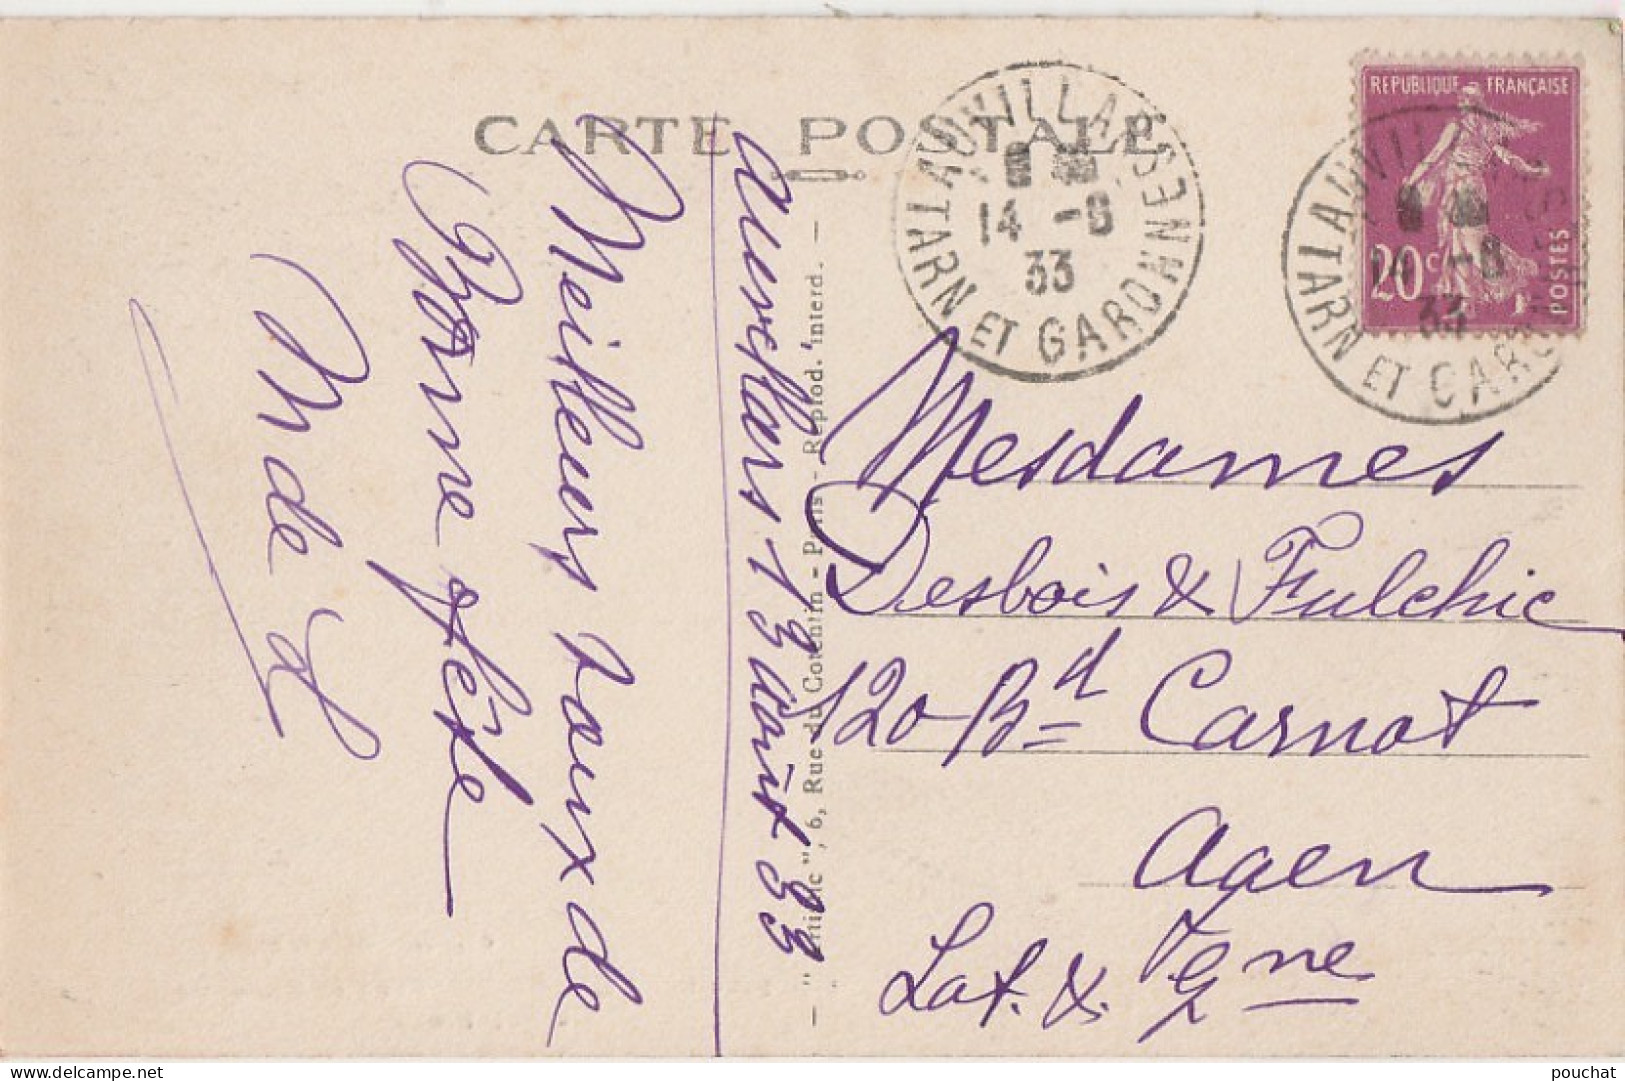 CARTE POSTALE
AUVILLAR
14 -8
33
TARN ET GARONNE
REPUBLIQUE FRANÇAISE
20c
POSTES
AUVILLAR
14 -8
33
TARN ET GARONNE
Auvillars 13 août 33
Meilleurs vœux de
Bonne fête
M de L
6, Rue du Cotentin - Paris - Reprod. interd. -
Mesdames
Desbois & Fulchic
120 Bd Carnot
Agen
Lot & Gne
delcampe.net
pouchat